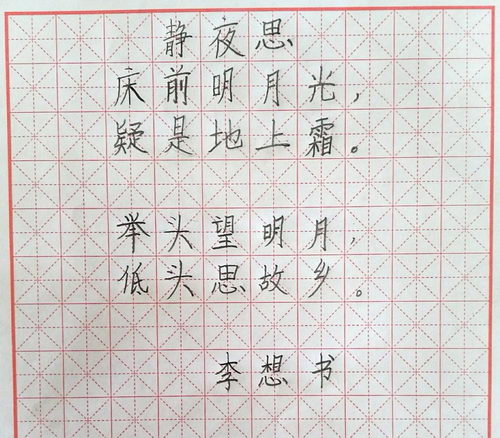 静夜思
床前明月光，
疑是地上霜。
举头望明月，
低头思故乡。
李想书